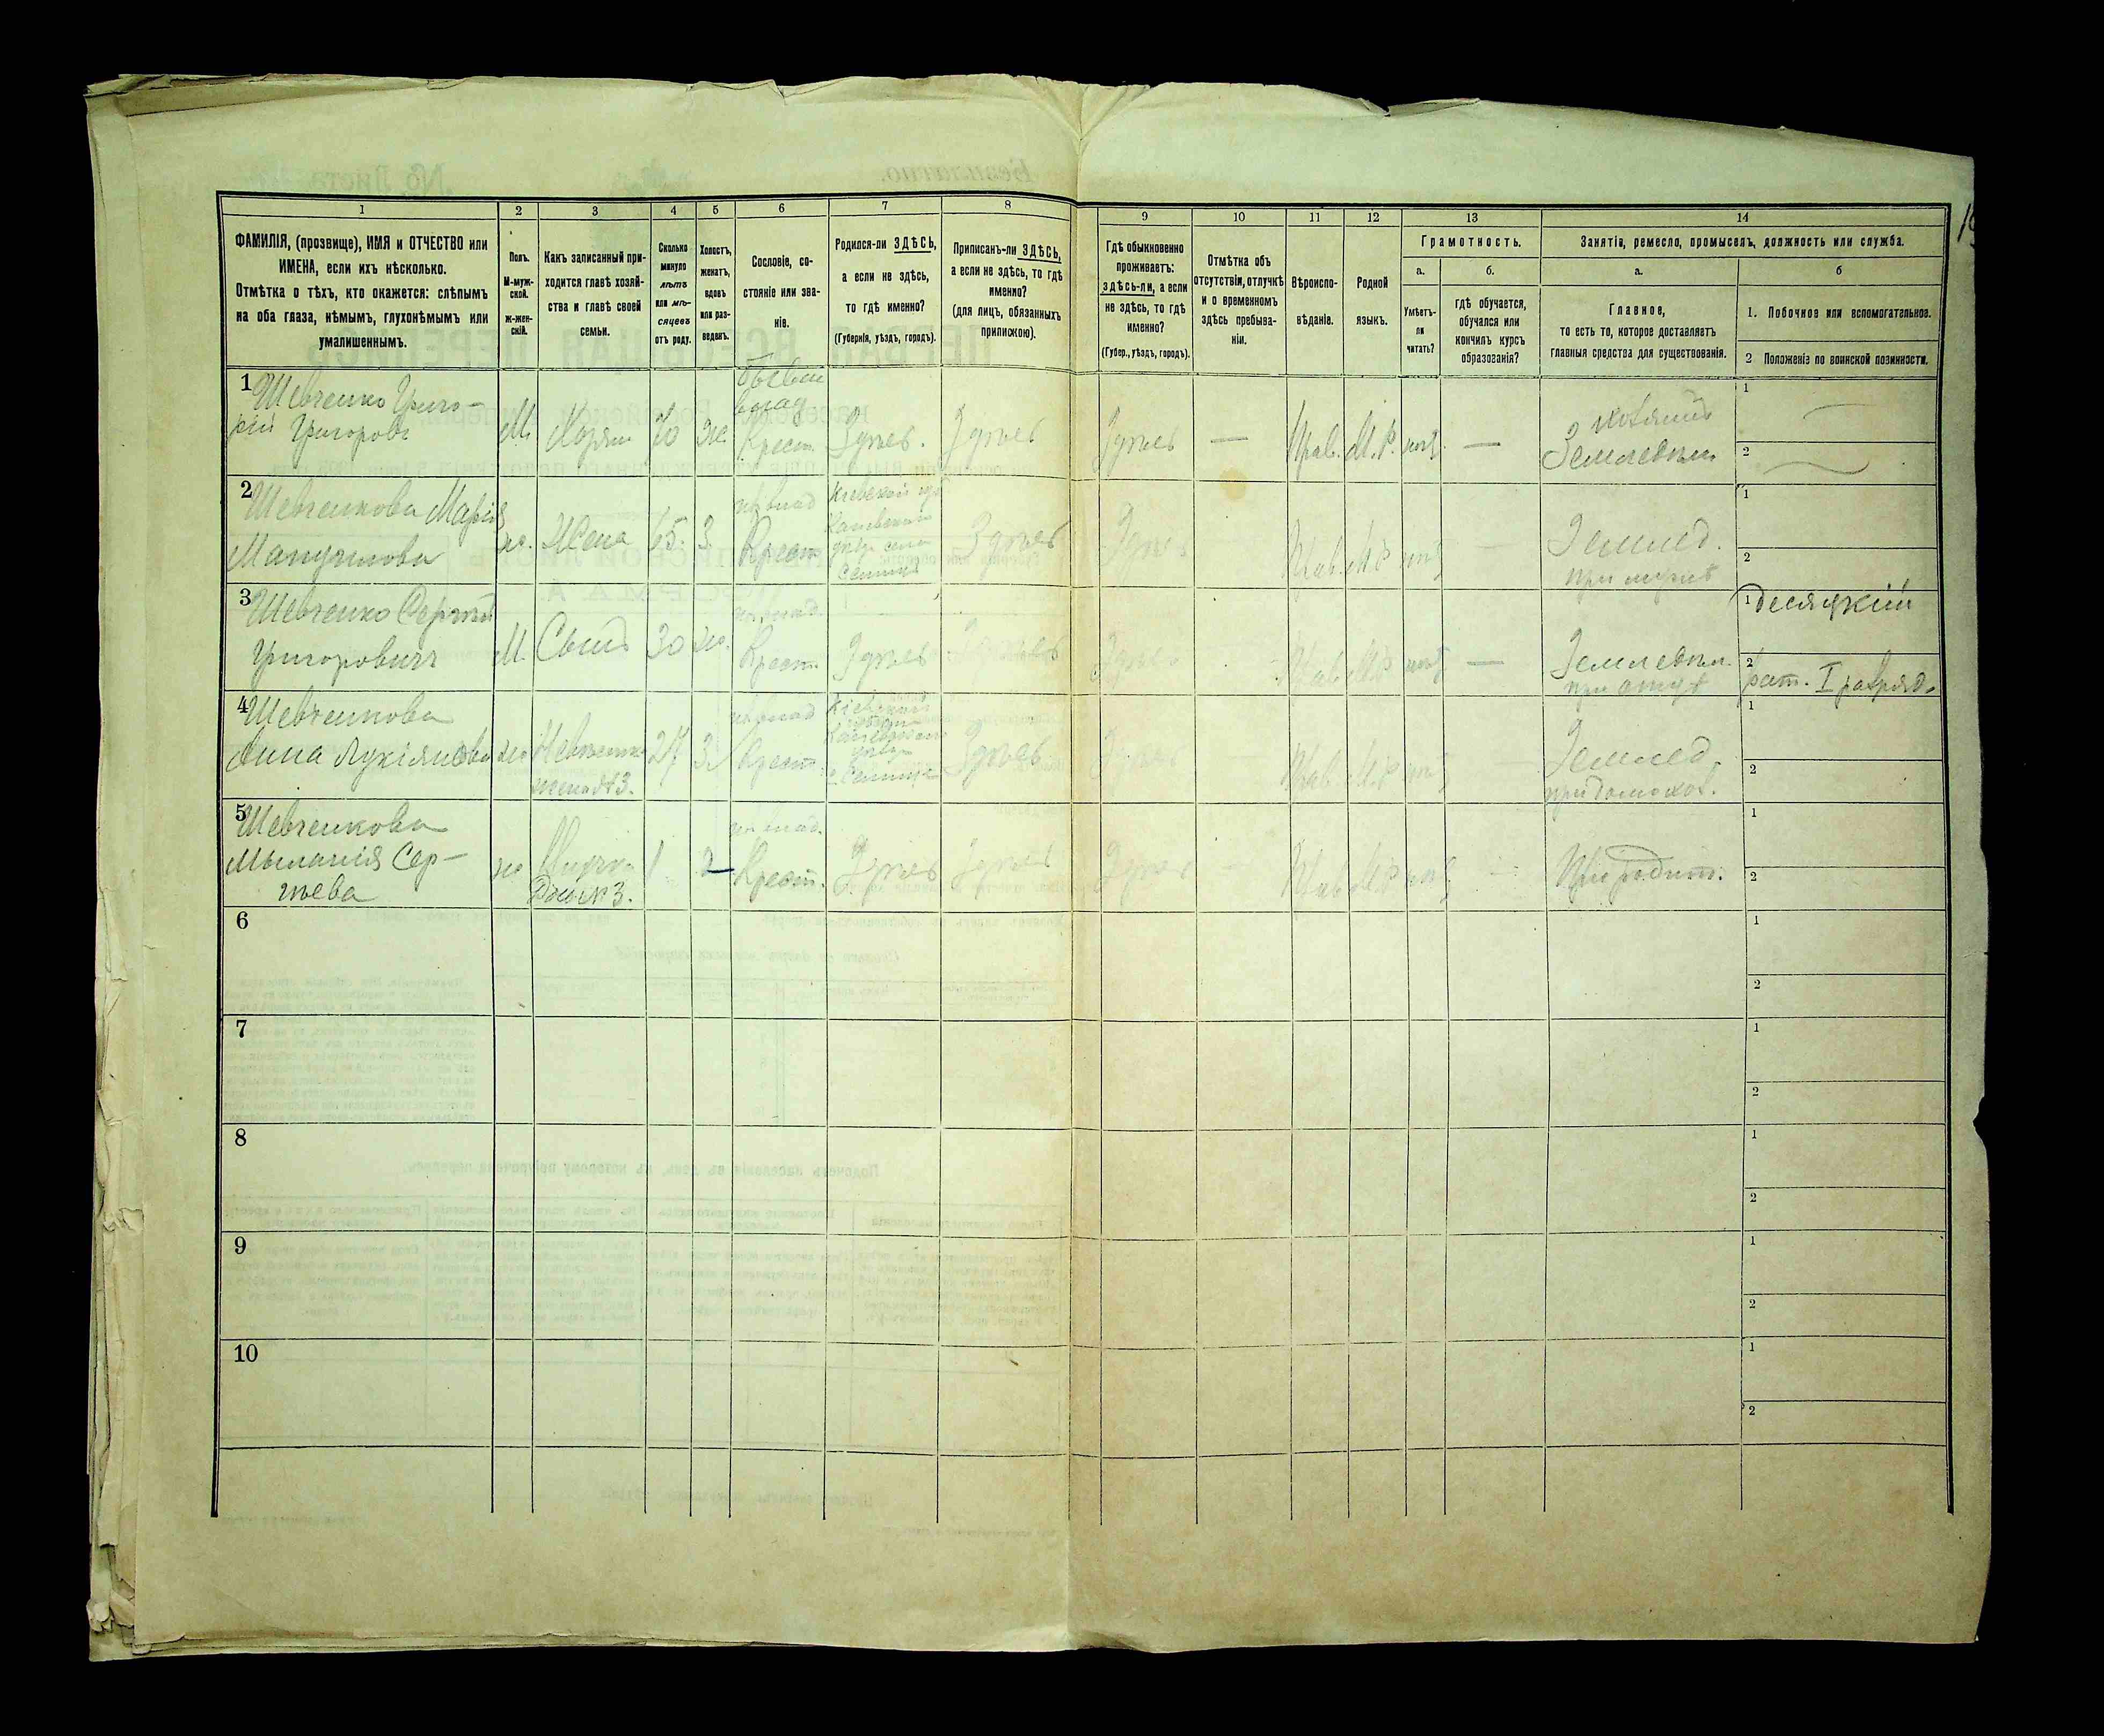 1
2
3
4
5
6
7
8
9
10
11
12
13
14
ФАМИЛІЯ, (прозвище), ИМЯ и ОТЧЕСТВО или
ИМЕНА, если ихъ нѣсколько.
Отмѣтка о тѣхъ, кто окажется: слѣпымъ
на оба глаза, нѣмымъ, глухонѣмымъ или
умалишеннымъ.
Полъ.
М-муж-
ской.
ж-жен-
скій.
Какъ записанный при-
ходится главѣ хозяй-
ства и главѣ своей
семьи.
Сколько
минуло
лѣтъ
или мѣ-
сяцевъ
отъ роду.
Холостъ,
женатъ,
вдовъ
или раз-
веденъ.
Сословіе, со-
стояніе или зва-
ніе.
Родился-ли ЗДѢСЬ,
а если не здѣсь,
то гдѣ именно?
(Губернія, уѣздъ, городъ).
Приписанъ-ли ЗДѢСЬ,
а если не здѣсь, то гдѣ
именно?
(для лицъ, обязанныхъ
припискою).
Гдѣ обыкновенно
проживаетъ:
здѣсь-ли, а если
не здѣсь, то гдѣ
именно?
(Губер., уѣздъ, городъ).
Отмѣтка объ
отсутствіи, отлучкѣ
и о временномъ
здѣсь пребыва-
ніи.
Вѣроиспо-
вѣданіе.
Родной
языкъ.
Грамотность.
а.
б.
Умѣетъ-
ли
читать?
гдѣ обучается,
обучался или
кончилъ курсъ
образованія?
Занятіе, ремесло, промыселъ, должность или служба.
а.
б
Главное,
то есть то, которое доставляетъ
главныя средства для существованія.
1. Побочное или вспомогательное.
2 Положеніе по воинской повинности.
1
Шевченко Григо-
рій Григоровъ
М. 70 ж.
Крест.
Здѣсь. Здѣсь Здѣсь — Прав. М.Р. —
1
2
2
Шевченкова Марія
ж. Жена 65. З
Крест
Здѣсь Здѣсь Прав. М.Р
Землед.
1
2
3
Шевченко Сергѣй
Григоровичъ
М. Сынъ 30 ж.
Крест. Здѣсь Здѣсь Здѣсь Прав М.Р —
1 десяцкій
2 рат. I разряд.
4
Шевченкова
Анна Лукіянова
Невѣстка
жена №3.
27 З.
Крест Здѣсь Здѣсь Прав М.Р
Землед.
1
2
5
Шевченкова
Мыланія Сер-
гѣева
ж Внучка
Дочь №3.
1
Крест. Здѣсь Здѣсь Здѣсь Прав М.Р
При родит.
1
2
6
1
2
7
1
2
8
1
2
9
1
2
10
1
2